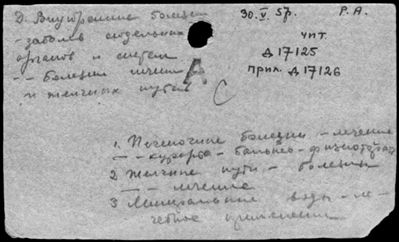 Д. Внутренние болезни
30.V.57.
Р.А.
- заболев. отдельных
органов и систем
чит.
Д 17125
-- болезни печени
и желчных путей
прил. Д 17126
А
С
1. Печеночные болезни - лечение
-- курорты - бальнео-физиотерап
2 Желчные пути - болезни
-- лечение
3 Минеральные воды - ле-
чебное применение